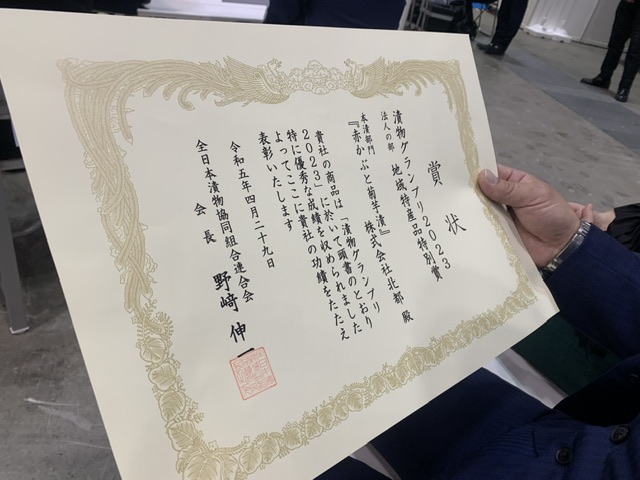 賞状
漬物グランプリ2023
法人の部　地域特産品特別賞
本漬部門
『赤かぶと菊芋漬』
株式会社北都　殿
貴社の商品は「漬物グランプリ
2023」に於いて頭書のとおり
特に優秀な成績を収められました
よってここに貴社の功績をたたえ
表彰いたします
令和五年四月二十九日
全日本漬物協同組合連合会
会長　野﨑伸一